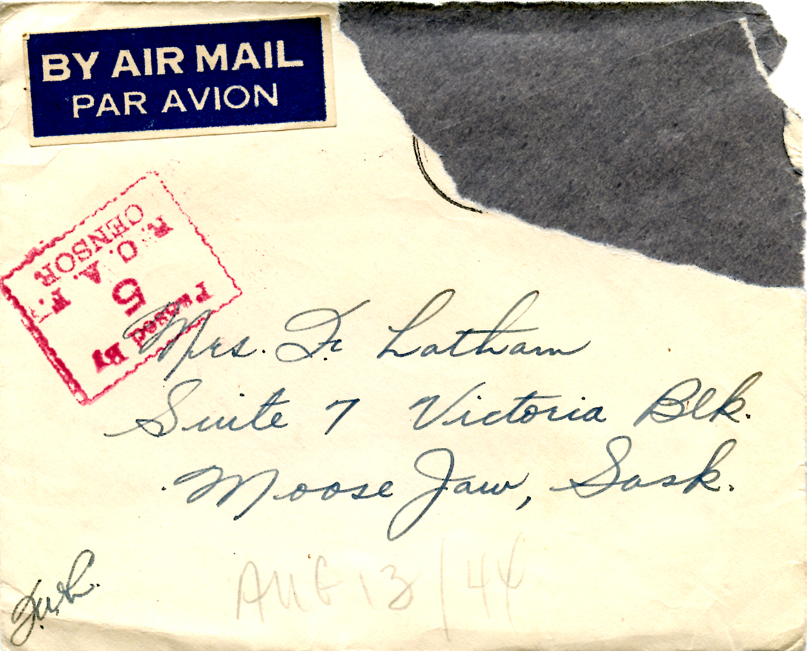 BY AIR MAIL
PAR AVION
Passed By
5
R. C. A. F.
CENSOR
Mrs. F. Latham
Suite 7 Victoria Blk.
Moose Jaw, Sask.
AUG 13/44